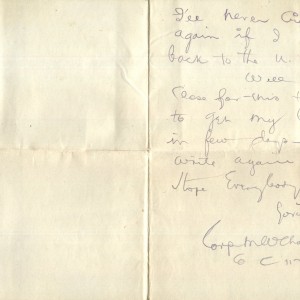 I'll never
again if I
back to the U.
Will
Close for this
to get my
in few days
write again
Hope Everybody
Corp
Co C